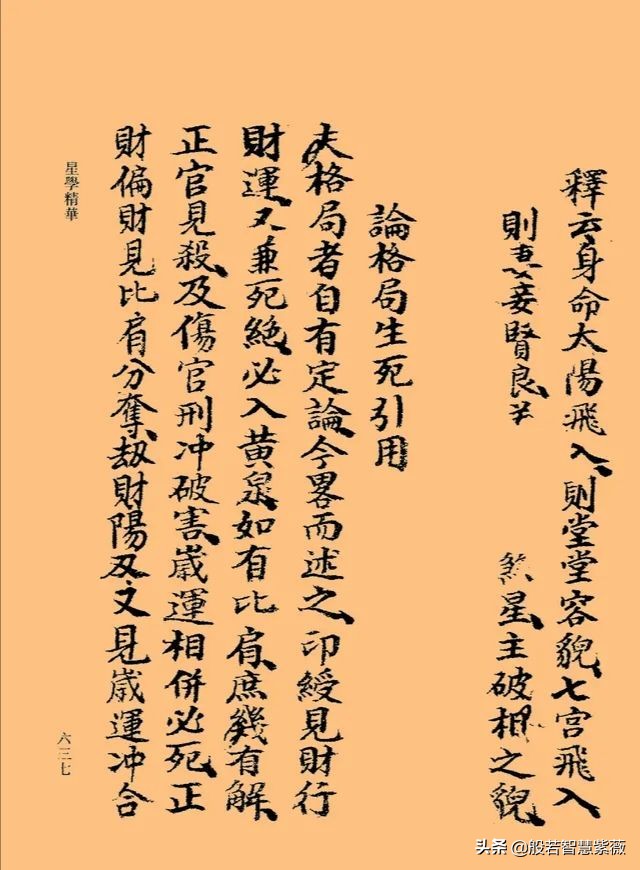 釋云身命太陽飛入則堂堂容貌七宮飛入
則妻妾賢良 煞星主破相之貌
論格局生死引用
夫格局者自有定論今畧而述之印綬見財行
財運又兼死絕必入黃泉如有比肩庶幾有解
正官見殺及傷官刑冲破害歲運相併必死正
財偏財見比肩分奪劫財陽刃又見歲運冲合
星學精華
六三七
头条 @般若智慧紫薇